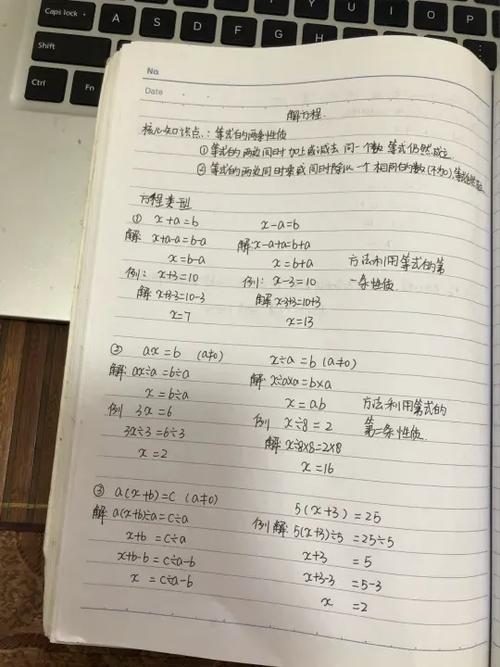 Caps lock
A
S
D
F
G
Y
U
I
O
P
Shift
Ctrl
Fn
No.
Date
解方程.
核心知识点:等式的两条性质
①等式的两边同时加上或减去同一个数,等式仍然成立.
②等式的两边同时乘或同时除以一个相同的数(不为0),等式仍然成立
方程类型
① x+a=b x-a=b
解: x+a-a=b-a 解:x-a+a=b+a
x=b-a x=b+a 方法利用等式的第
例: x+3=10 例: x-3=10 一条性质.
解 x+3-3=10-3 解 x-3+3=10+3
x=7 x=13
② ax=b (a≠0) x÷a=b (a≠0)
解: ax÷a=b÷a 解: x÷a×a=b×a
x=b÷a x=ab 方法利用等式的
例 3x=6 例 x÷8=2 第二条性质.
3x÷3=6÷3 解: x÷8×8=2×8
x=2 x=16
③ a(x+b)=c (a≠0) 5(x+3)=25
解: a(x+b)÷a=c÷a 例 解: 5(x+3)÷5=25÷5
x+b=c÷a x+3=5
x+b-b=c÷a-b x+3-3=5-3
x=c÷a-b x=2